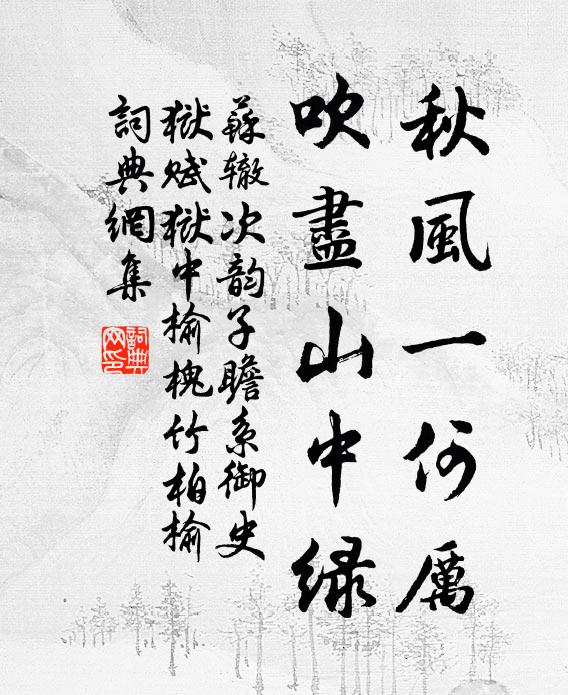 秋風一何厲
吹盡山中緑
蘇辙次韵子瞻系御史
狱赋狱中榆槐竹柏榆
詞典網集
詞典網印